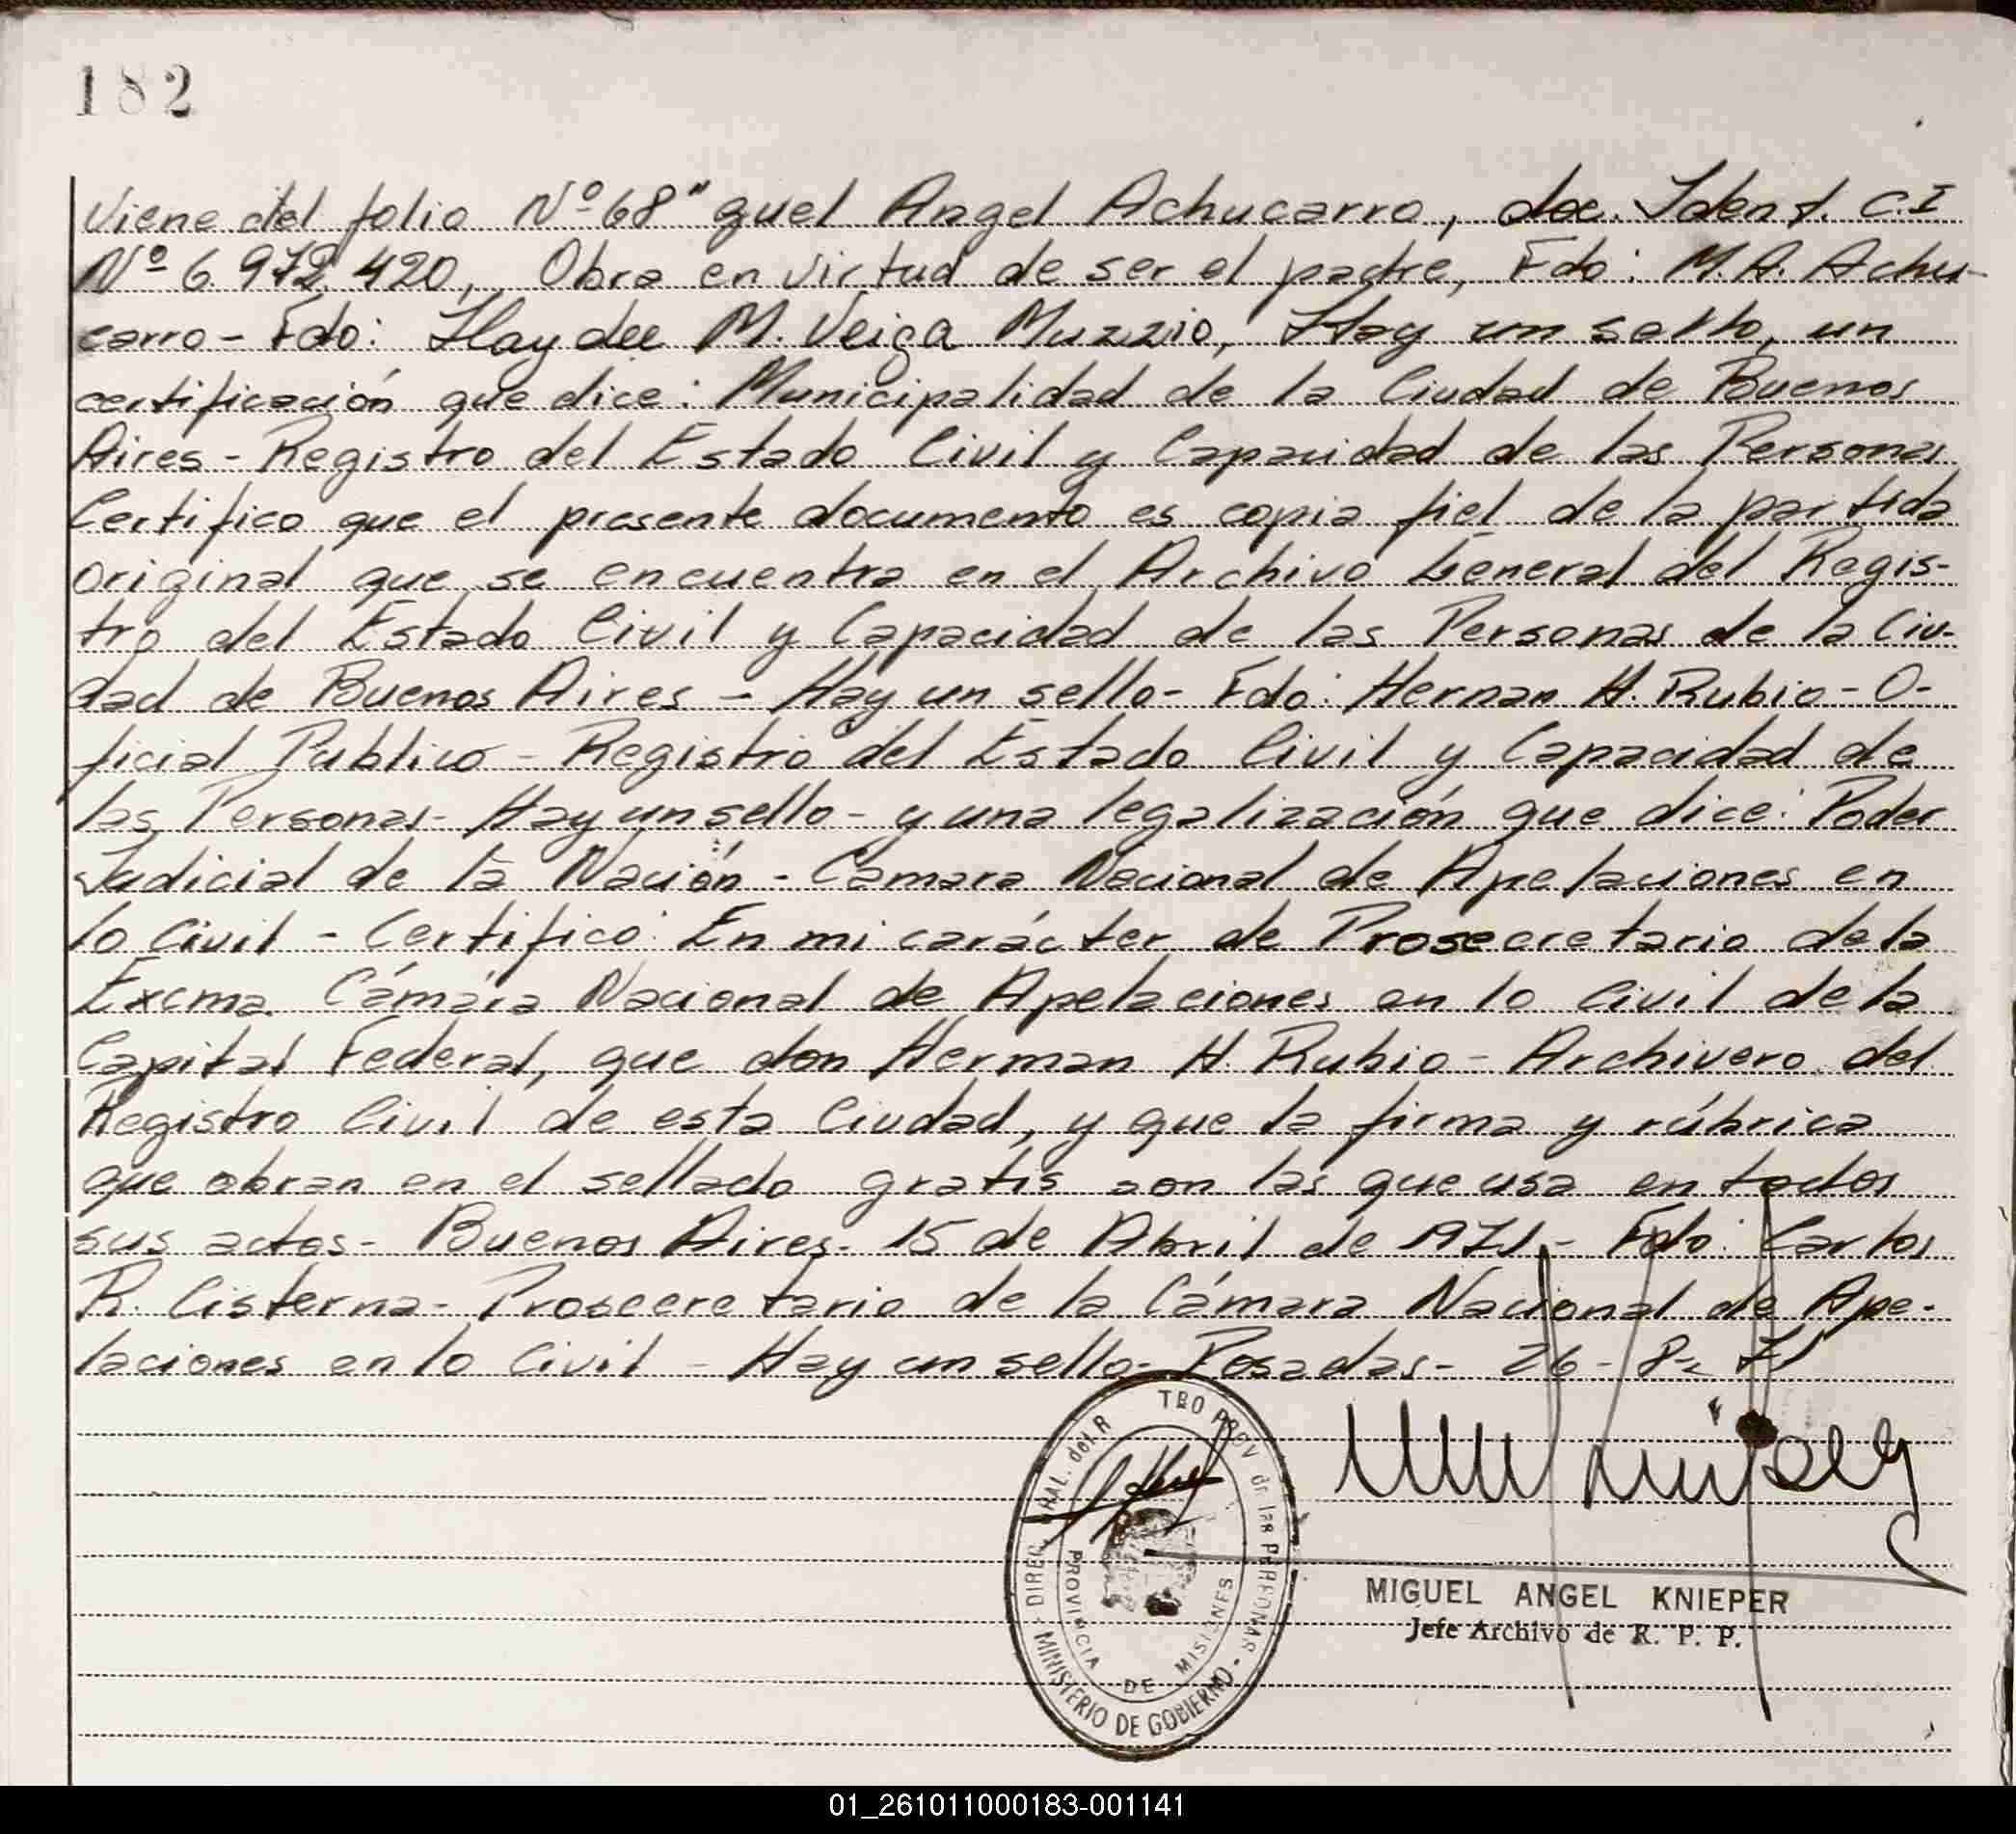 182
Viene del folio Nº 68" guel Angel Achucarro, doc. Ident. C.I
Nº 6.972.420, Obra en virtud de ser el padre, Fdo: M.A. Achu-
carro - Fdo: Haydee M. Veiga Muzzio, Hay un sello, un
certificación que dice: Municipalidad de la Ciudad de Buenos
Aires - Registro del Estado Civil y Capacidad de las Personas
Certifico que el presente documento es copia fiel de la partida
original que se encuentra en el Archivo General del Regis-
tro del Estado Civil y Capacidad de las Personas de la Ciu-
dad de Buenos Aires - Hay un sello - Fdo: Hernan H. Rubio - O-
ficial Publico - Registro del Estado Civil y Capacidad de
las Personas - Hay un sello - y una legalización que dice: Poder
Judicial de la Nación - Cámara Nacional de Apelaciones en
lo Civil - Certifico: En mi carácter de Prosecretario de la
Excma. Cámara Nacional de Apelaciones en lo Civil de la
Capital Federal, que don Herman H. Rubio - Archivero del
Registro Civil de esta Ciudad, y que la firma y rúbrica
que obran en el sellado gratis son las que usa en todos
sus actos - Buenos Aires - 15 de Abril de 1971 - Fdo: Carlos
R. Cisterna - Prosecretario de la Cámara Nacional de Ape-
laciones en lo Civil - Hay un sello - Posadas - 26 - 8 - 71
DIREC. GRAL. del R TRO PROV de las PERSONAS
MINISTERIO DE GOBIERNO
PROVINCIA DE MISIONES
MIGUEL ANGEL KNIEPER
Jefe Archivo de R. P. P.
01_261011000183-001141